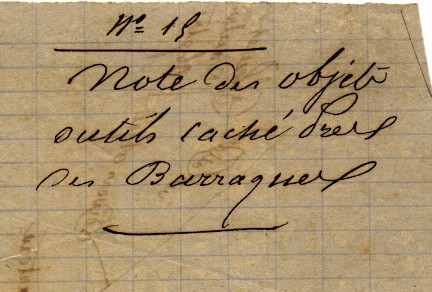 Nº 15
Note des objets
outils caché Près
des Barraques